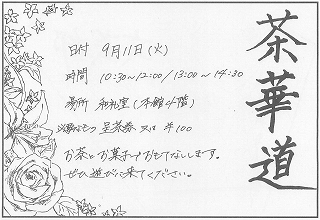 茶華道
日付 9月11日(火)
時間 10:30~12:00/13:00~14:30
場所 和礼室(本館4階)
必要なもの 呈茶券 又は ¥100
お茶とお菓子でおもてなしします。
ぜひ遊びに来てください。